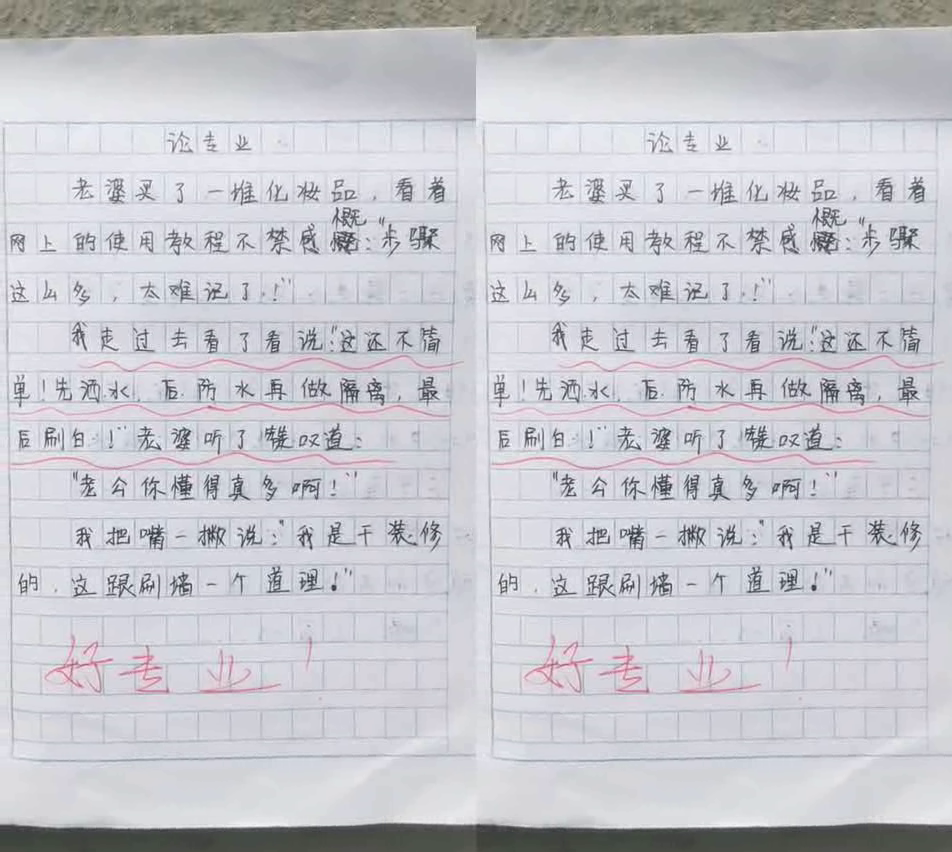 论专业
老婆买了一堆化妆品，看着
网上的使用教程不禁感概："步骤
这么多，太难记了！"
我走过去看了看说："这还不简
单！先洒水，后防水再做隔离，最
后刷白！"老婆听了赞叹道：
"老公你懂得真多啊！"
我把嘴一撇说："我是干装修
的，这跟刷墙一个道理！"
好专业！
论专业
老婆买了一堆化妆品，看着
网上的使用教程不禁感概："步骤
这么多，太难记了！"
我走过去看了看说："这还不简
单！先洒水，后防水再做隔离，最
后刷白！"老婆听了赞叹道：
"老公你懂得真多啊！"
我把嘴一撇说："我是干装修
的，这跟刷墙一个道理！"
好专业！